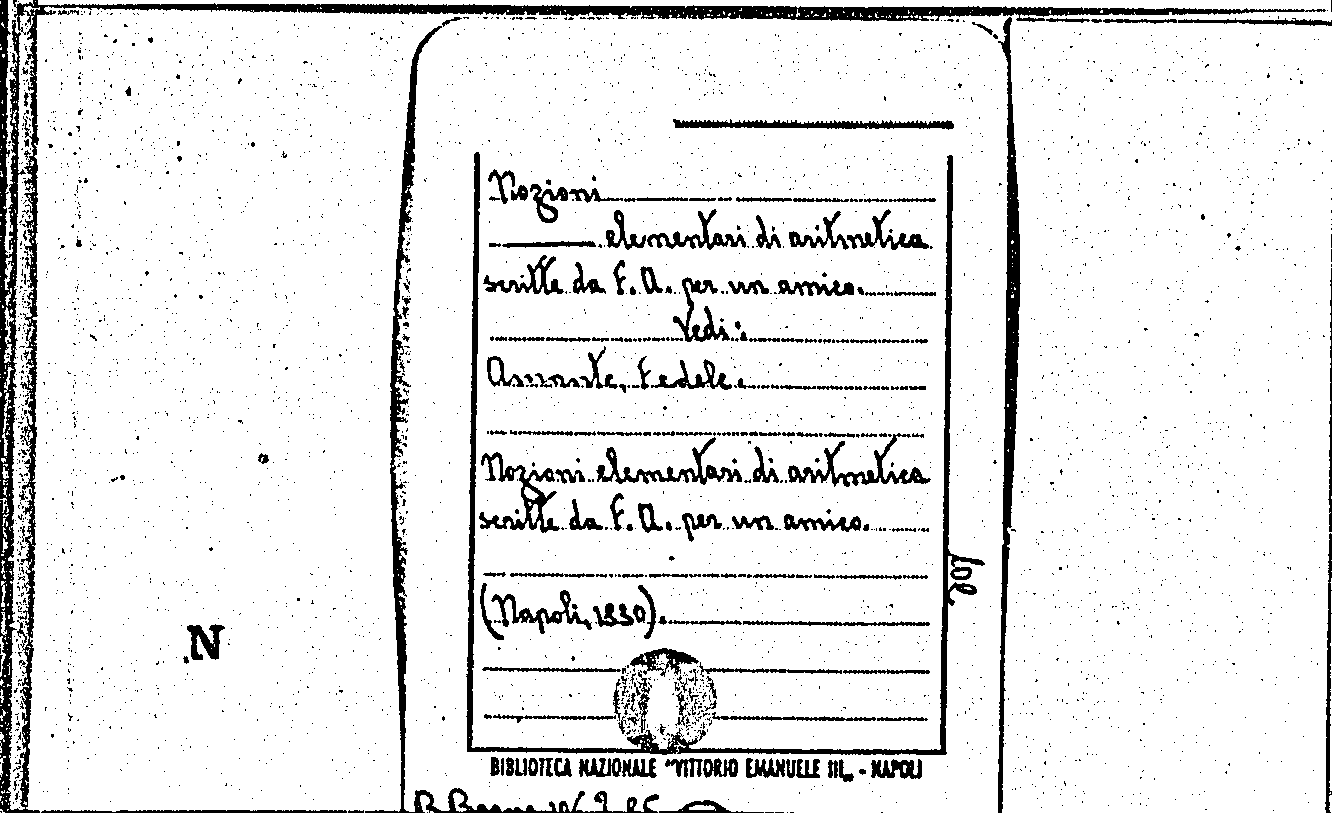 Nozioni
elementari di aritmetica
scritte da F. A. per un amico.
Vedi:
Amante, Fedele.
Nozioni elementari di aritmetica
scritte da F. A. per un amico.
(Napoli, 1830).
N
BIBLIOTECA NAZIONALE "VITTORIO EMANUELE III„ - NAPOLI